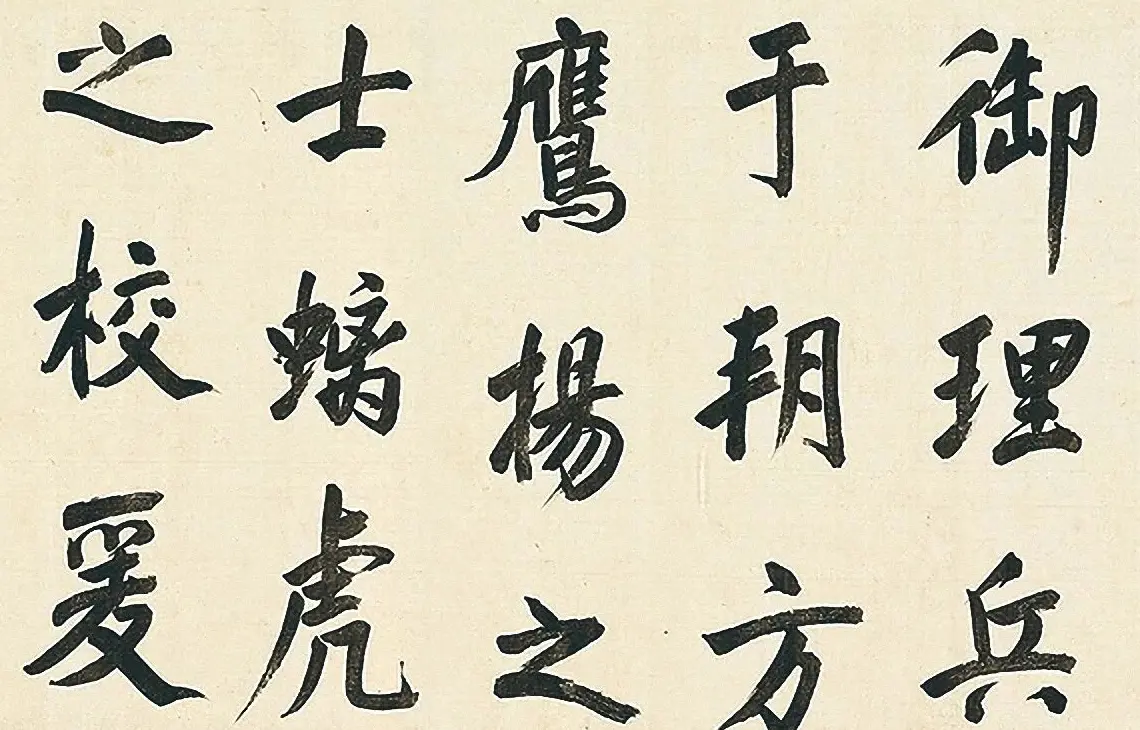 御理兵
于朔方
鷹揚之
士螭虎
之校爰